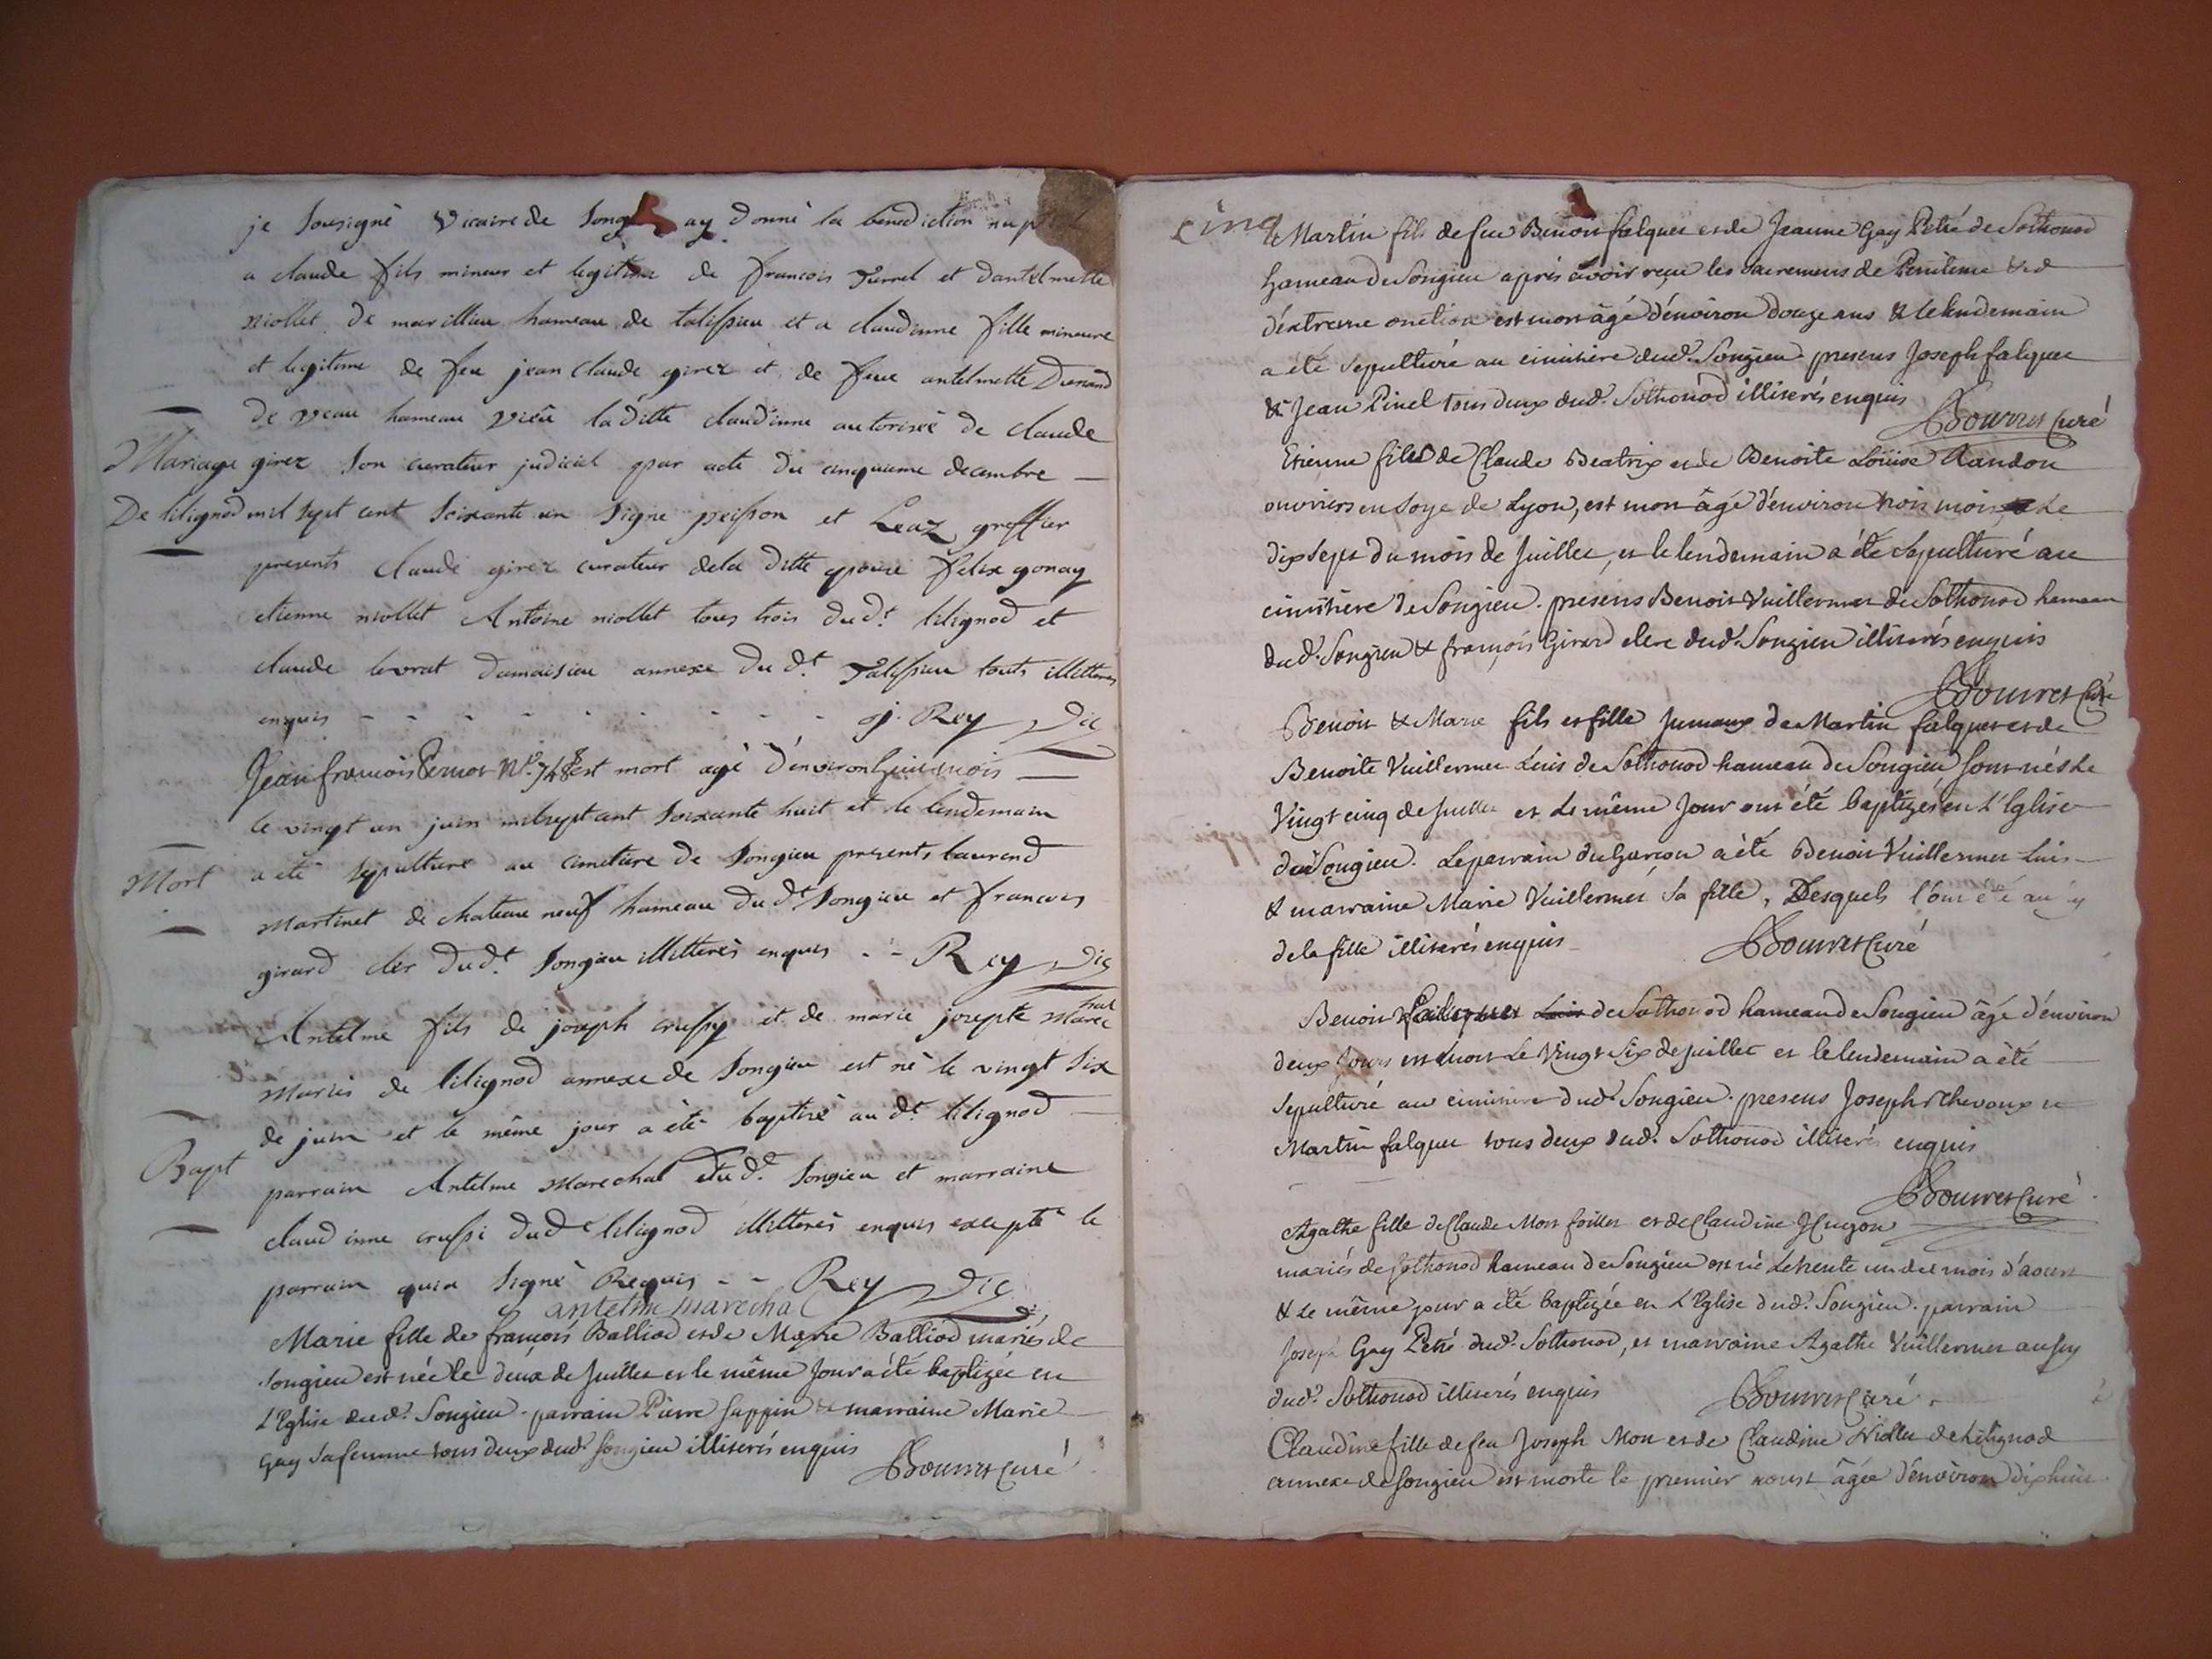 je sousigné vicaire de ay donné la benediction
a claude fils mineur et legitime de francois et dantelmette
niollet de marillieu hameau de talissieu et a claudinne fille mineure
et legitime de feu jean claude girez et de feue antelmette
de veau hameau vieu la ditte claudinne autorisée de claude
Mariage girez son curateur judiciel par acte du cinquieme decembre
De lilignod mil sept cent soixante un signe peisson et Leaz greffier
presents claude girez curateur dela ditte epouse felix gonay
etienne niollet Antoine niollet tous trois dud.t lilignod et
claude levrat damaisieu annexe du d.t Talissieu touts illitteres
enquis - - - - - - - - j. Rey vic
Jean francois N.o 748 est mort agé d'environ huit mois
le vingt un juin mil sept cent soixante huit et le lendemain
Mort a eté sepulturé au cimetiere de songieu presents laurend
martinet de chateau neuf hameau du d.t songieu et francois
girard cler dud.t songieu illitterés enquis - - Rey vic
Antelme fils de joseph crussy et de marie josepte marechal
mariés de lilignod annexe de songieu est né le vingt six
de juin et le même jour a été baptisé au d.t lilignod
Bapt parrain Antelme marechal dud.t songieu et marraine
claudinne crussi dud.t lilignod illitterés enquis excepté le
parrain qui a signé Requis - - Rey vic
antelme marechal
Marie fille de françois Balliod et de Marie Balliod mariés de
songieu est née le deux de juillet et le même jour a été baptizée en
L'Eglise dud.t Songieu. parrain Pierre Suppin & marraine Marie
Gay sa femme tous deux dud.t songieu illiterés enquis
Bouvret Curé
cinq
Martin fils de feu Benoit falquet et de Jeanne Gay Petré de Sothonod
hameau de Songieu après avoir reçu les sacremens de Penitence & d
d'extreme onction est mort âgé d'environ douze ans & le lendemain
a été sepulturé au cimitière dud.t Songieu presens Joseph falquet
& Jean Pinel tous deux dud.t Sothonod illiterés enquis
Bouvret Curé
Etienne fils de Claude Beatrix et de Benoite Loüise Randon
ouvriers en soye de Lyon, est mort âgé d'environ trois mois Le
dix sept du mois de Juillet, et le lendemain a été sepulturé au
cimitière de Songieu. presens Benoit Vuillermet de Sothonod hameau
dud.t Songieu & françois Girard clerc dud.t Songieu illiterés enquis
Bouvret Curé
Benoit & Marie fils et fille Jumaux de Martin falquet et de
Benoite Vuillermet Luis de Sothonod hameau de Songieu sont nés le
Vingt cinq de Juillet et le même Jour ont été baptizés en L'Eglise
dud Songieu. Le parrain du garçon a été Benoit Vuillermet Luis
& marraine Marie Vuillermet sa fille, Lesquels l'ont été aussy
de la fille illiterés enquis Bouvret Curé
Benoit falquet Luis de Sothonod hameau de Songieu âgé d'environ
deux Jours est mort Le Vingt Six de Juillet et le lendemain a été
sepulturé au cimitiere dud.t Songieu. presens Joseph Chevoux et
Martin falquet tous deux dud.t Sothonod illiterés enquis
Bouvret Curé
Agathe fille de Claude Mon et de Claudine Hugon
mariés de Sothonod hameau de Songieu est né le trente un du mois d'aoust
& le même jour a été baptizée en L'Eglise dud.t Songieu. parrain
Joseph Gay Petré dud.t Sothonod, et marraine Agathe Vuillermet aussy
dud.t Sothonod illiterés enquis Bouvret Curé
Claudine fille de feu Joseph Mon et de Claudine Niollet de Lilignod
annexe de Songieu est morte le premier aoust âgée d'environ dix huit